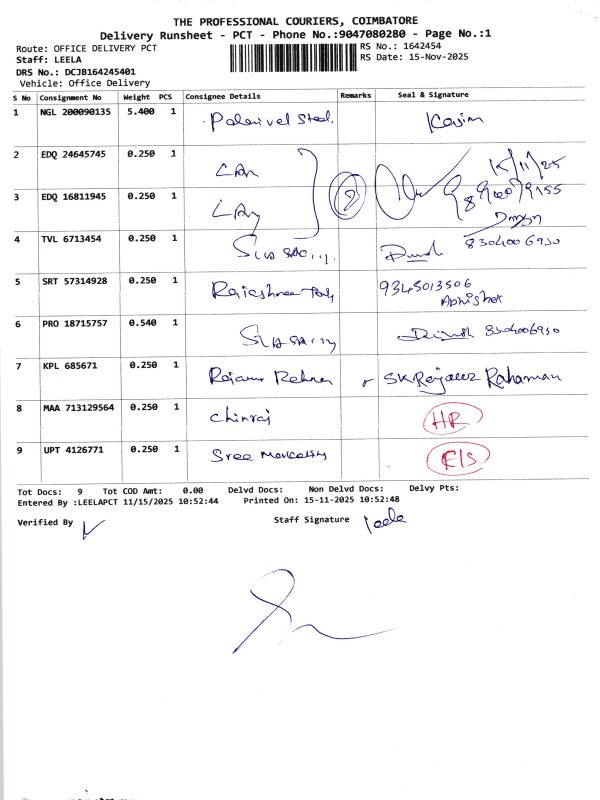 THE PROFESSIONAL COURIERS, COIMBATORE
Delivery Runsheet - PCT - Phone No.:9047080280 - Page No.:1
Route: OFFICE DELIVERY PCT
RS No.: 1642454
Staff: LEELA
RS Date: 15-Nov-2025
DRS No.: DCJB164245401
Vehicle: Office Delivery
S No Consignment No Weight PCS Consignee Details Remarks Seal & Signature
1 NGL 200090135 5.400 1 Palanivel Steel Kasim
2 EDQ 24645745 0.250 1 15/11/25
3 EDQ 16811945 0.250 1
4 TVL 6713454 0.250 1 8304006930
5 SRT 57314928 0.250 1 Rajashree 9345013506
Abhishek
6 PRO 18715757 0.540 1 Dinesh 8304006930
7 KPL 685671 0.250 1 SK Rejaur Rahaman
8 MAA 713129564 0.250 1 Chinraj HR
9 UPT 4126771 0.250 1 Sree E/S
Tot Docs: 9 Tot COD Amt: 0.00 Delvd Docs: Non Delvd Docs: Delvy Pts:
Entered By :LEELAPCT 11/15/2025 10:52:44 Printed On: 15-11-2025 10:52:48
Verified By Staff Signature leela